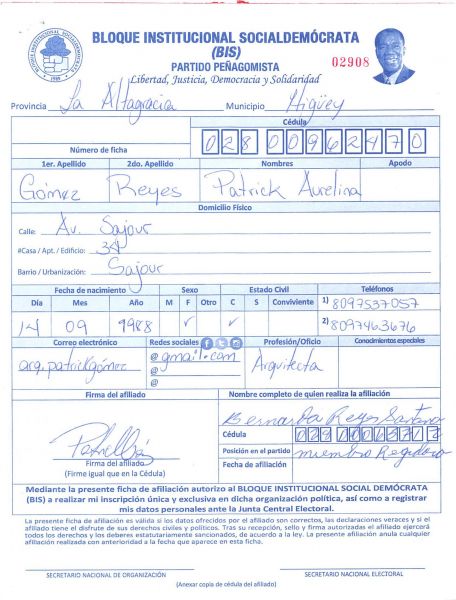 BLOQUE INSTITUCIONAL SOCIALDEMÓCRATA
(BIS)
PARTIDO PEÑAGOMISTA
02908
Libertad, Justicia, Democracia y Solidaridad
Provincia La Altagracia Municipio Higüey
Cédula
Número de ficha 028 0096247 0
1er. Apellido 2do. Apellido Nombres Apodo
Gómez Reyes Patrick Aurelina
Domicilio Físico
Calle: Av. Sajour
#Casa / Apt. / Edificio: 34
Barrio / Urbanización: Sajour
Fecha de nacimiento Sexo Estado Civil Teléfonos
Día Mes Año M F Otro C S Conviviente 1) 8097537057
14 09 1988 ✓ ✓ 2) 8097463676
Correo electrónico Redes sociales Profesión/Oficio Conocimientos especiales
arq.patrickgómez @gmail.com Arquitecta
@
@
Firma del afiliado Nombre completo de quien realiza la afiliación
Reyes Santana
Cédula 028
Posición en el partido miembro
Firma del afiliado Fecha de afiliación
(Firme igual que en la Cédula)
Mediante la presente ficha de afiliación autorizo al BLOQUE INSTITUCIONAL SOCIAL DEMÓCRATA
(BIS) a realizar mi inscripción única y exclusiva en dicha organización política, así como a registrar
mis datos personales ante la Junta Central Electoral.
La presente ficha de afiliación es válida si los datos ofrecidos por el afiliado son correctos, las declaraciones veraces y si el
afiliado tiene el disfrute de sus derechos civiles y políticos. Tras su recepción, sello y firma autorizadas el afiliado ejercerá
todos los derechos y los deberes estatutariamente sancionados, de acuerdo a la ley. La presente afiliación anula cualquier
afiliación realizada con anterioridad a la fecha que aparece en esta ficha.
SECRETARIO NACIONAL DE ORGANIZACIÓN SECRETARIO NACIONAL ELECTORAL
(Anexar copia de cédula del afiliado)